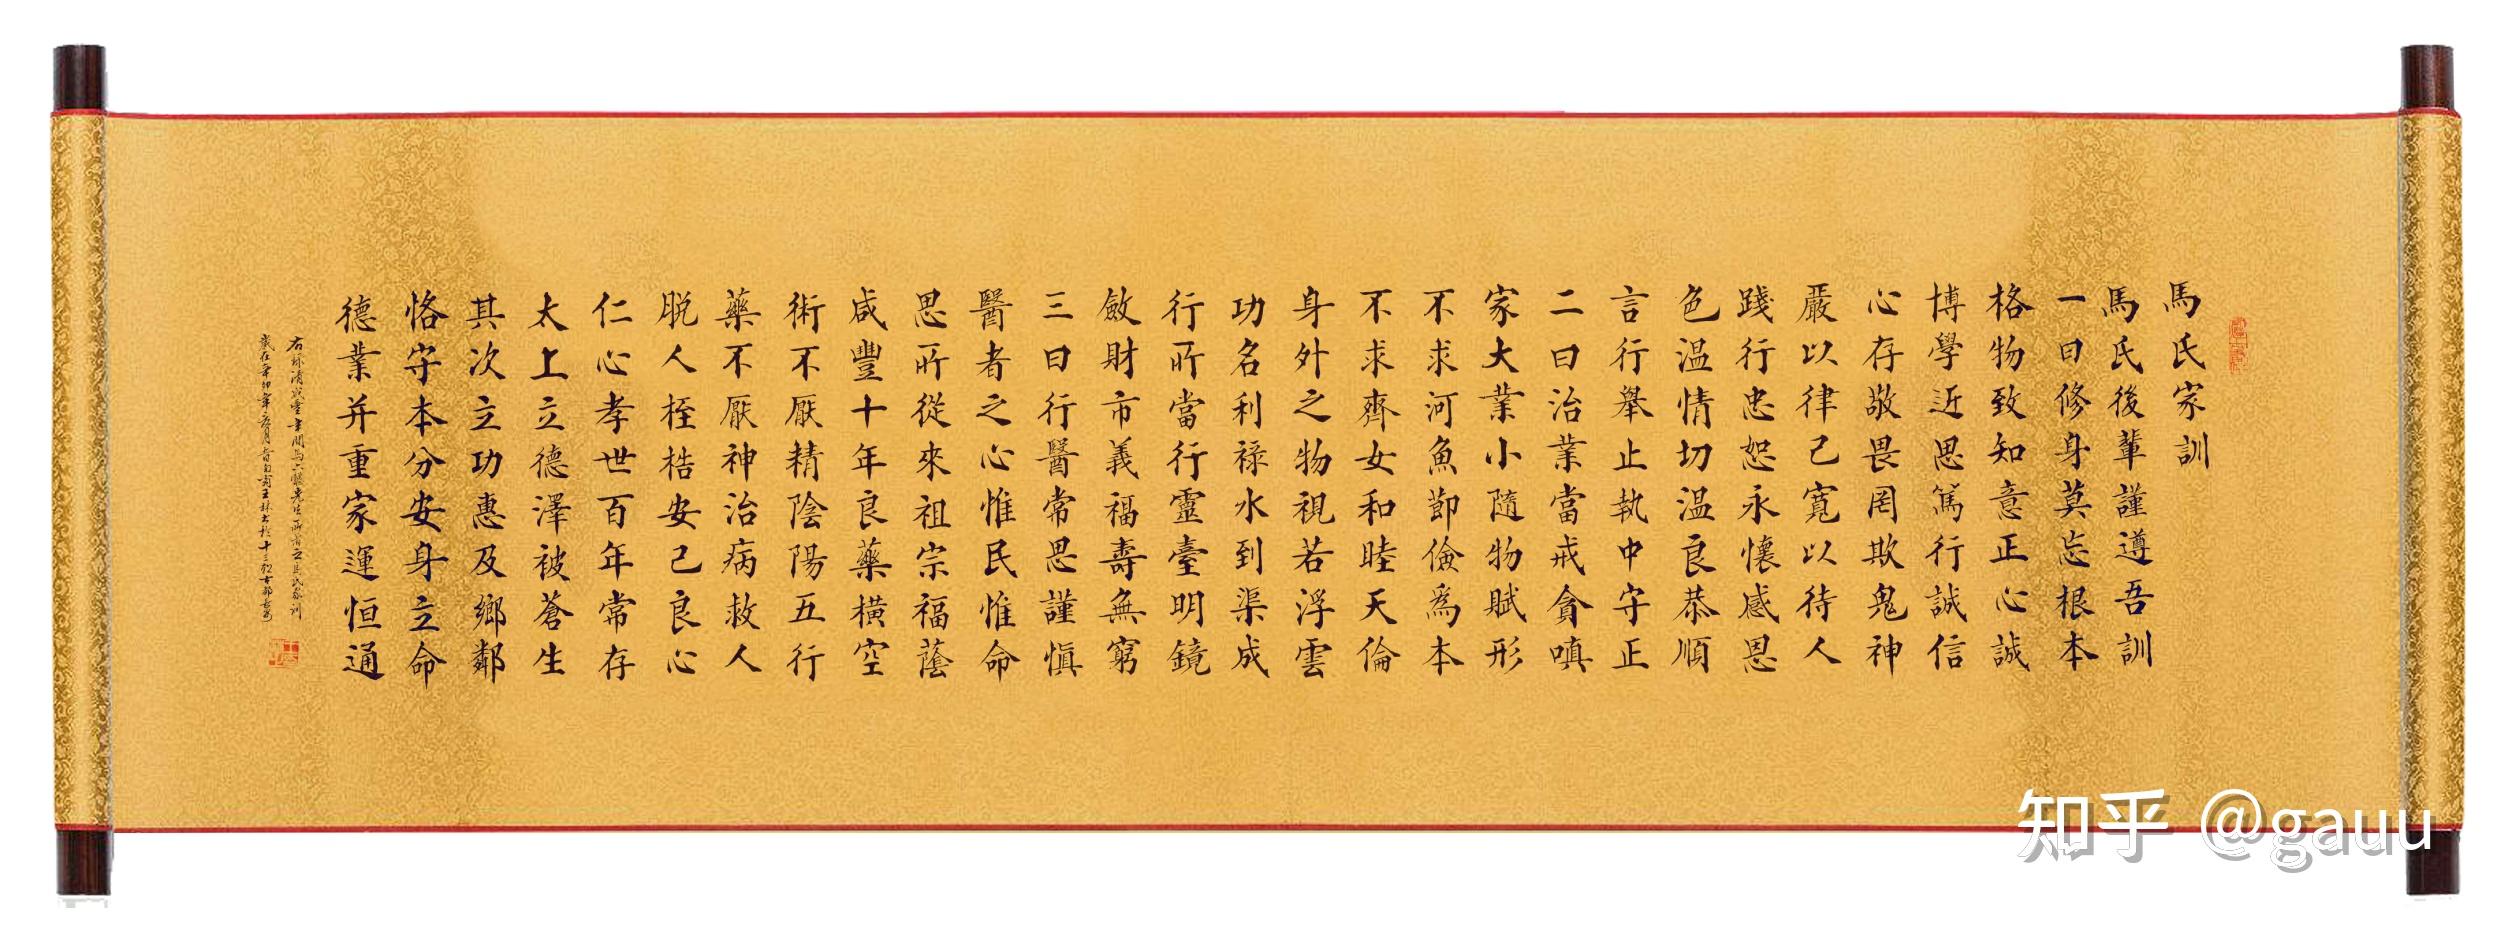 馬氏家訓
馬氏後輩謹遵吾訓
一曰修身莫忘根本
格物致知意正心誠
博學近思篤行誠信
心存敬畏罔欺鬼神
嚴以律己寬以待人
踐行忠恕永懷感恩
色温情切温良恭順
言行舉止執中守正
二曰治業當戒貪嗔
家大業小隨物賦形
不求河魚節儉爲本
不求齊女和睦天倫
身外之物視若浮雲
功名利祿水到渠成
行所當行靈臺明鏡
斂財市義福壽無窮
三曰行醫常思謹慎
醫者之心惟民惟命
思所從來祖宗福蔭
咸豐十年良藥橫空
術不厭精陰陽五行
藥不厭神治病救人
脱人桎梏安己良心
仁心孝世百年常存
太上立德澤被蒼生
其次立功惠及鄉鄰
恪守本分安身立命
德業并重家運恒通
右録清咸豐年間馬六醫先生所著之馬氏家訓
歲在辛卯年
知乎 @gauu